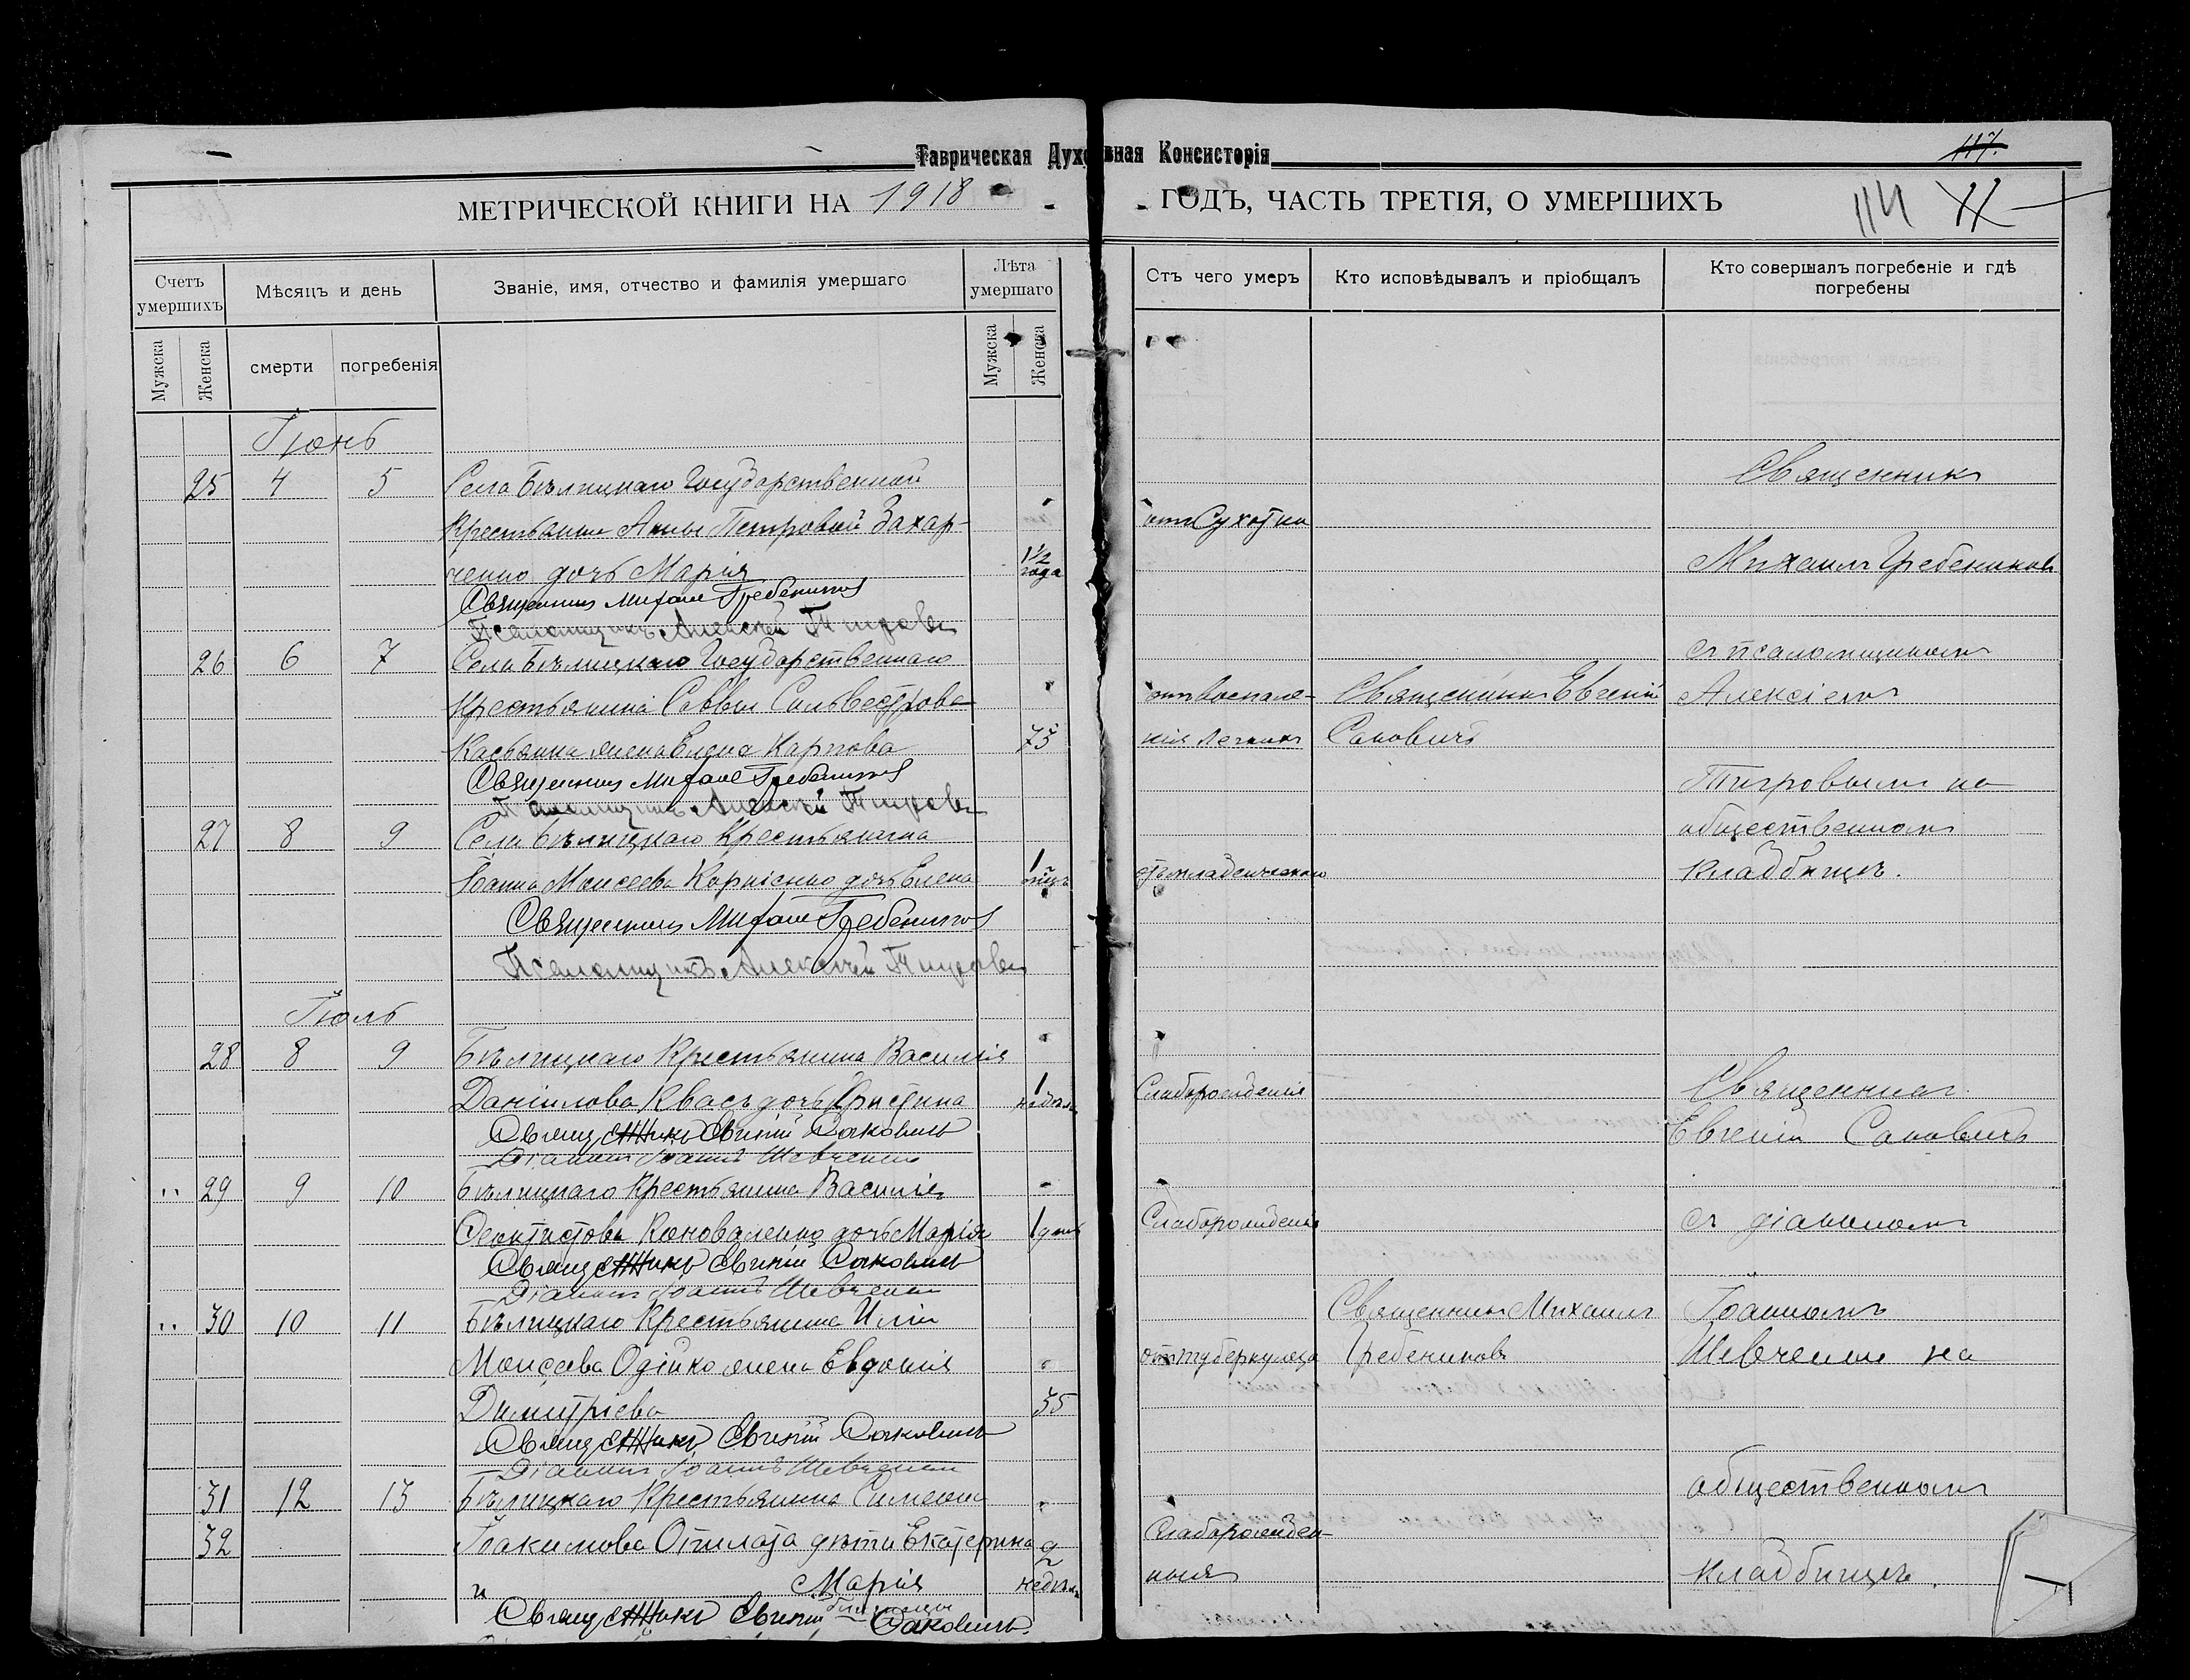 Таврическая Духовная Консисторія
117.
МЕТРИЧЕСКОЙ КНИГИ НА 1918 ГОДЪ, ЧАСТЬ ТРЕТІЯ, О УМЕРШИХЪ
114
Счетъ умершихъ
Мѣсяцъ и день
Званіе, имя, отчество и фамилія умершаго
Лѣта умершаго
Мужска
Женска
смерти
погребенія
Мужска
Женска
Іюнь
25 4 5 Села Бѣлицкаго Государственной
Крестьянки Анны Петровой Захар-
ченко дочь Марія 1½ года
Священник Михаил Гребеников
Псаломщикъ Алексей Тигровъ
26 6 7 Села Бѣлицкаго Государственнаго
Крестьянина Саввы Сильвестрова
Касьянна жена Елена Карпова 75
Священник Михаил Гребеников
Псаломщикъ Алексей Тигровъ
27 8 9 Села Бѣлицкаго Крестьянина
Іоанна Моисеева Корніенко дочь Елена 1
Священник Михаил Гребеников
Псаломщикъ Алексей Тигровъ
Іюль
28 8 9 Бѣлицкаго Крестьянина Василія
Даніилова Квасъ дочь Христина 1 недѣли
Священникъ Евгеній Саковичъ
Діаконъ Іоаннъ Шевченко
29 9 10 Бѣлицкаго Крестьянина Василія
Феоктистова Коноваленко дочь Марія 1 день
Священникъ Евгеній Саковичъ
Діаконъ Іоаннъ Шевченко
30 10 11 Бѣлицкаго Крестьянина Иліи
Моисеева Одійко жена Евдокія
Димитріева 35
Священникъ Евгеній Саковичъ
Діаконъ Іоаннъ Шевченко
31 12 13 Бѣлицкаго Крестьянина Симеона
32 Іоакимова Опилата дѣти Екатерина 2
и Марія недѣли
Близнецы
Священникъ Евгеній Саковичъ
Отъ чего умеръ
Кто исповѣдывалъ и пріобщалъ
Кто совершалъ погребеніе и гдѣ погребены
Священник
отъ Сухотки
Михаилъ Гребениковъ
съ псаломщикомъ
отъ воспале- Священникъ Евгеній Алексіемъ
нія легкихъ Саковичъ
Тигровымъ на
общественномъ
отъ младенческаго кладбищѣ.
Слаборожденія Священникъ
Евгеній Саковичъ
Слаборожденія съ діакономъ
Священникъ Михаилъ Іоанномъ
отъ туберкулеза Гребениковъ Шевченко на
общественномъ
Слаборожден-
нія кладбищѣ.